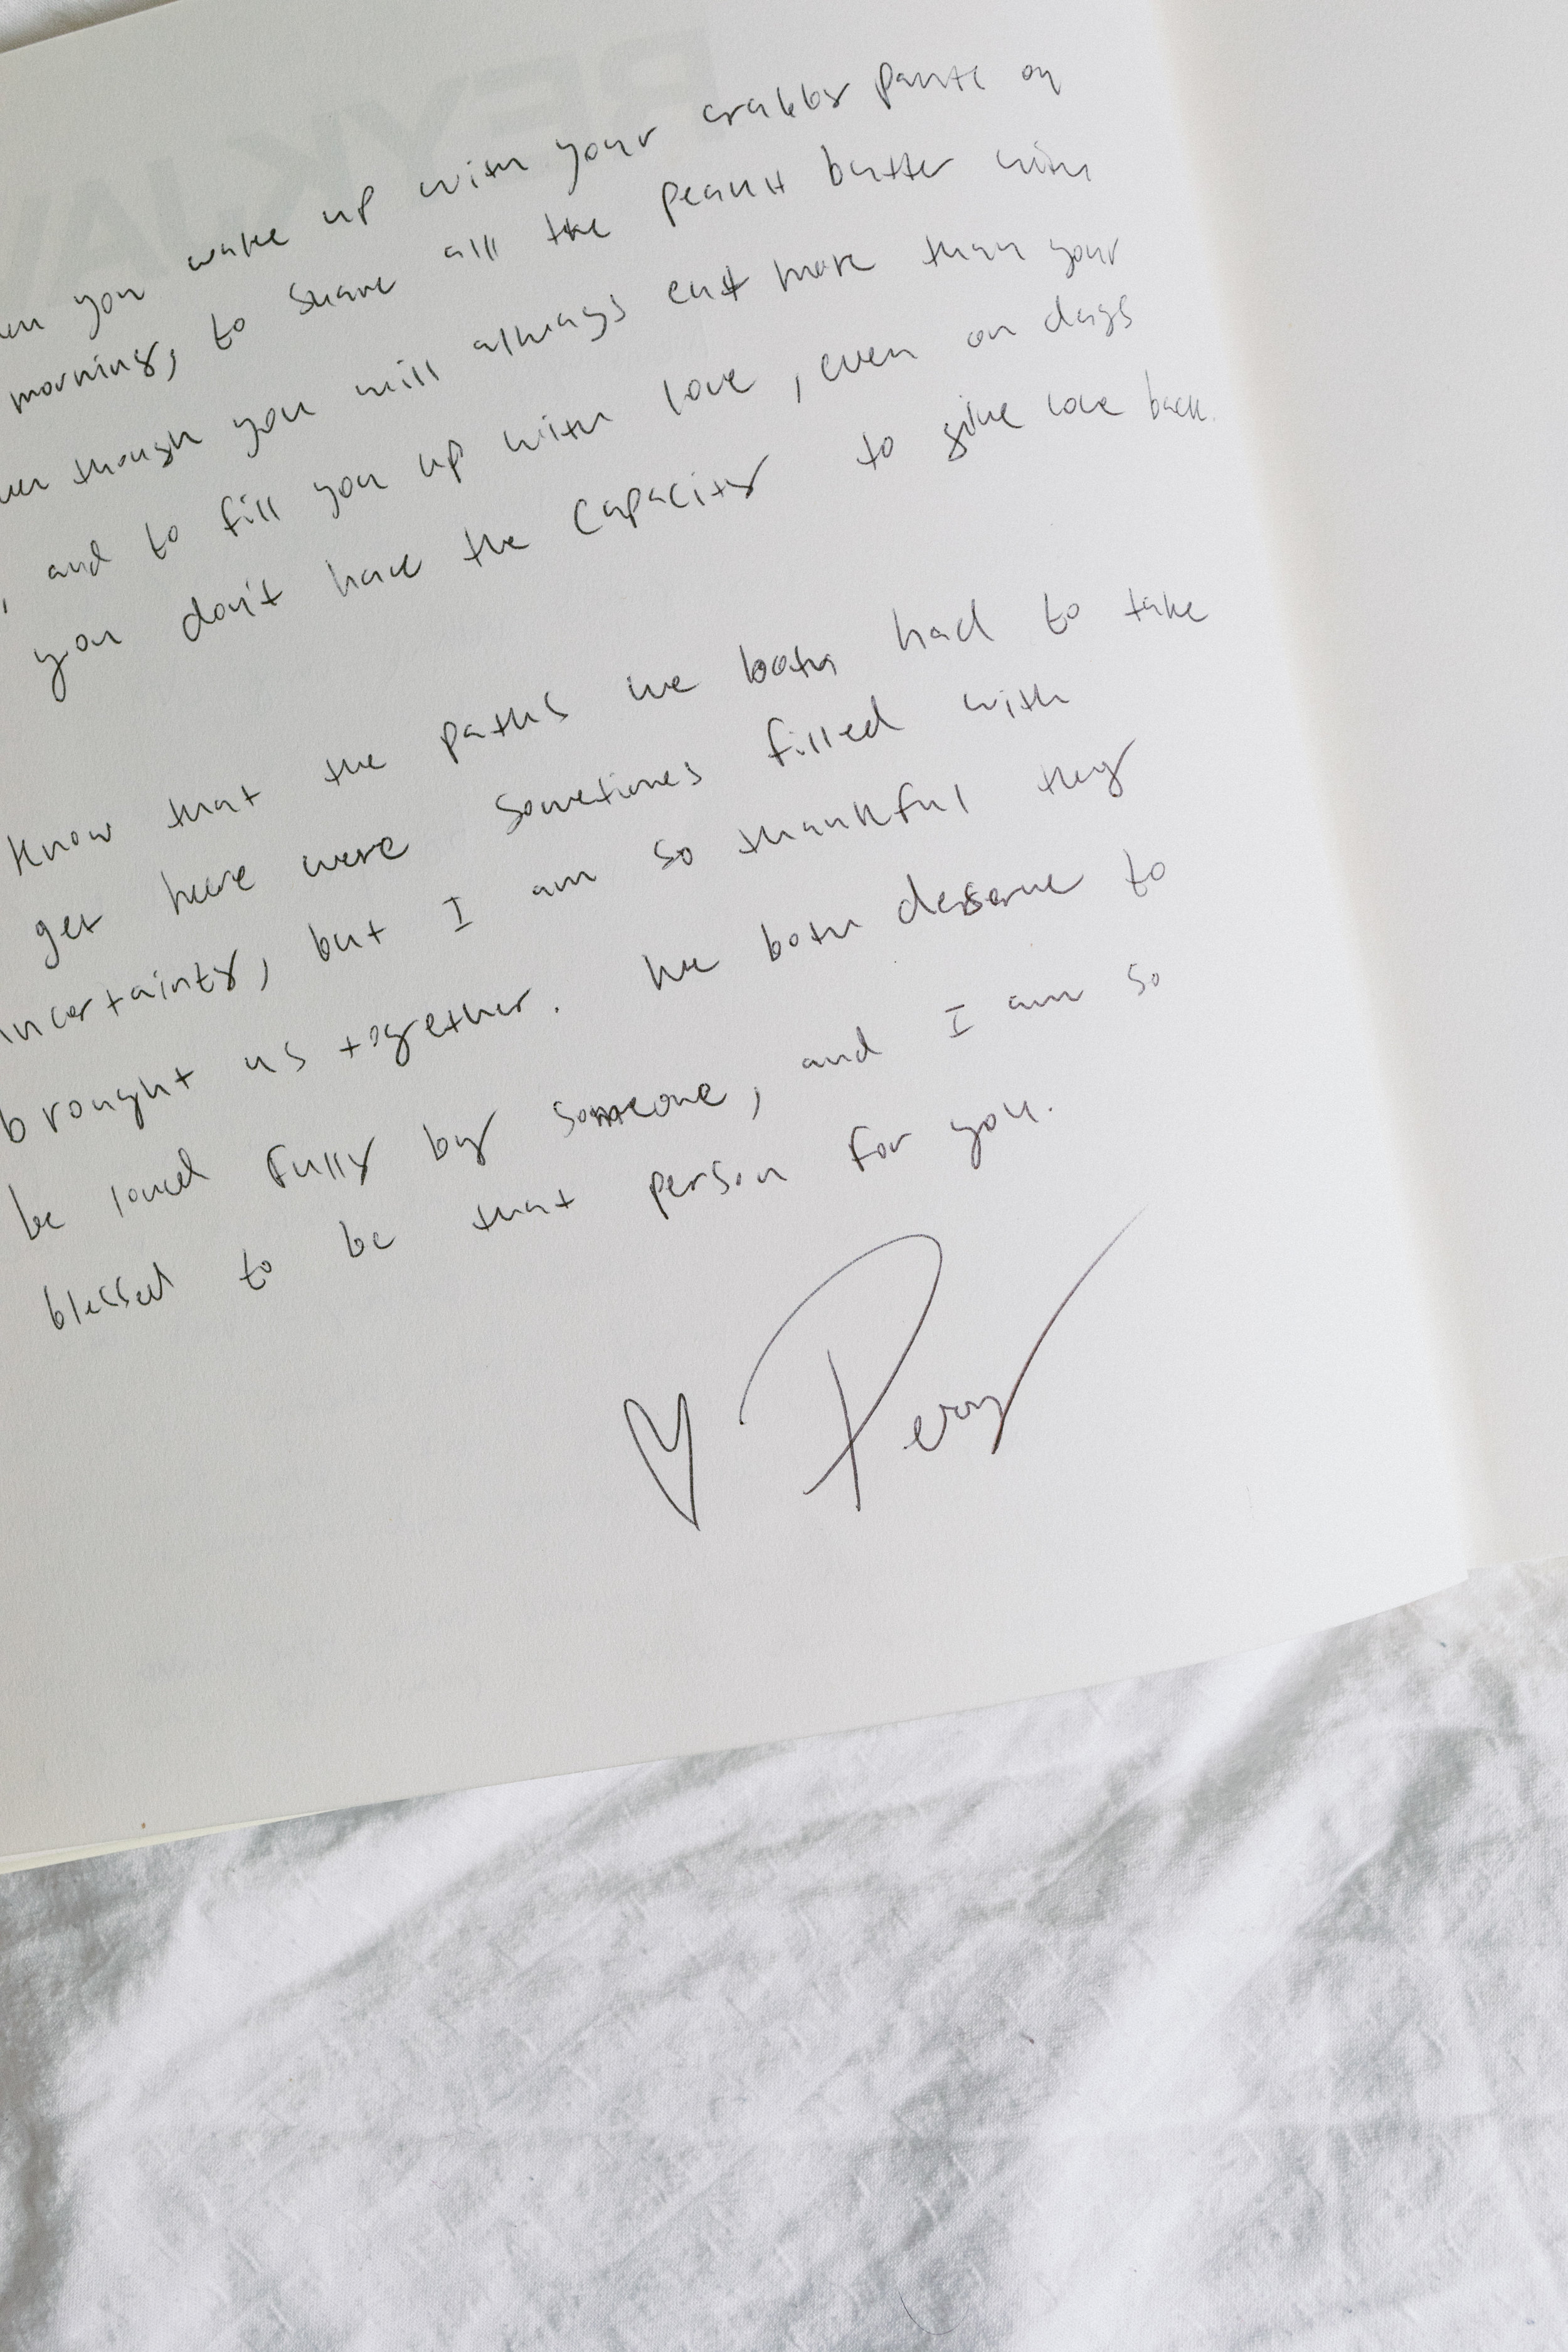 REYKJAV
you wake up with your crabby pants on
morning, to share all the peanut butter with
though you will always eat more than your
, and to fill you up with love, even on days
you don't have the capacity to give love back.
Know that the paths we both had to take
get here were sometimes filled with
ncertainty, but I am so thankful they
brought us together. We both deserve to
be loved fully by someone, and I am so
blessed to be that person for you.
♡ Perry